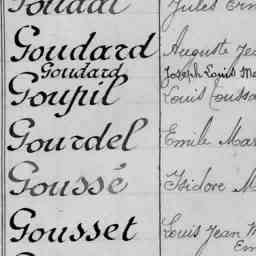 Goudard Auguste
Goudard Joseph Louis
Goupil Louis
Gourdel Emile
Goussé Isidore
Gousset Louis Jean